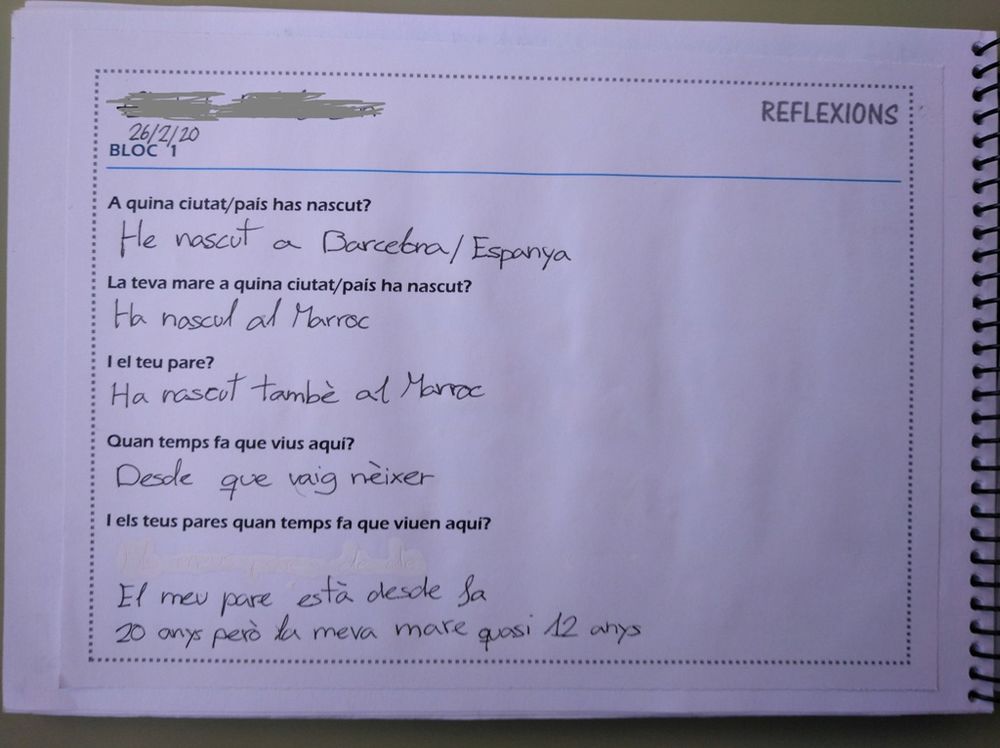 REFLEXIONS
26/2/20
BLOC 1
A quina ciutat/país has nascut?
He nascut a Barcelona/Espanya
La teva mare a quina ciutat/país ha nascut?
Ha nascut al Marroc
I el teu pare?
Ha nascut tambè al Marroc
Quan temps fa que vius aquí?
Desde que vaig nèixer
I els teus pares quan temps fa que viuen aquí?
El meu pare està desde fa
20 anys però la meva mare quasi 12 anys